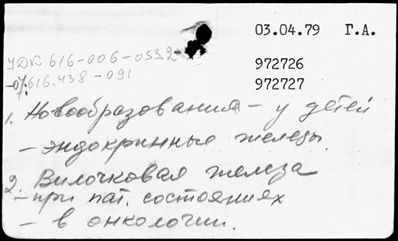 03.04.79 Г.А.
УДК 616-006-053.2-
-07.616.438-091
972726
972727
1. Новообразования - у детей
- эндокринные железы.
2. Вилочковая железа
- при пат. состояниях
- в онкологии.